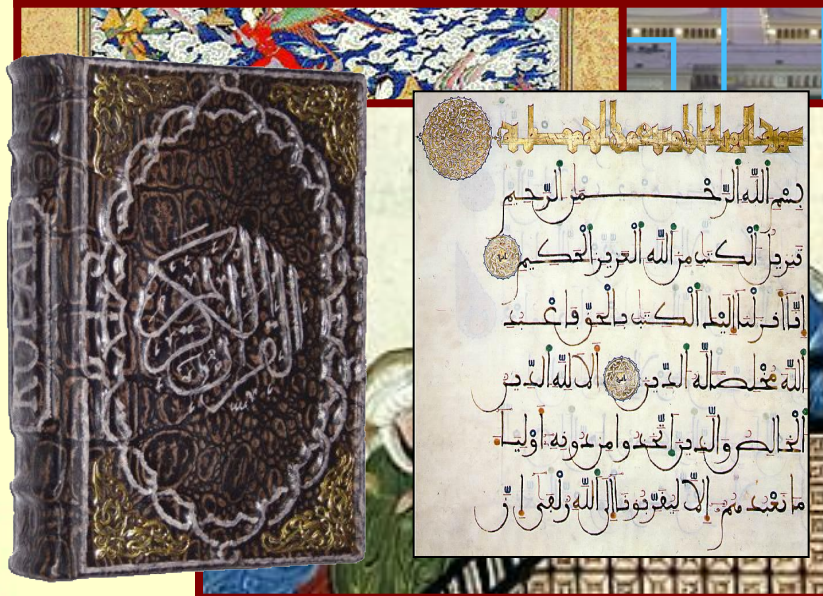 القرآن الكريم
بِسْمِ اللَّهِ الرَّحْمَنِ الرَّحِيمِ
تَنزِيلُ الْكِتَبِ مِنَ اللَّهِ الْعَزِيزِ الْحَكِيمِ
إِنَّا أَنزَلْنَا إِلَيْكَ الْكِتَبَ بِالْحَقِّ فَاعْبُدِ
اللَّهَ مُخْلِصًا لَّهُ الدِّينَ أَلَا لِلَّهِ الدِّينُ
الْخَالِصُ وَالَّذِينَ اتَّخَذُوا مِن دُونِهِ أَوْلِيَاءَ
مَا نَعْبُدُهُمْ إِلَّا لِيُقَرِّبُونَا إِلَى اللَّهِ زُلْفَى إِنَّ